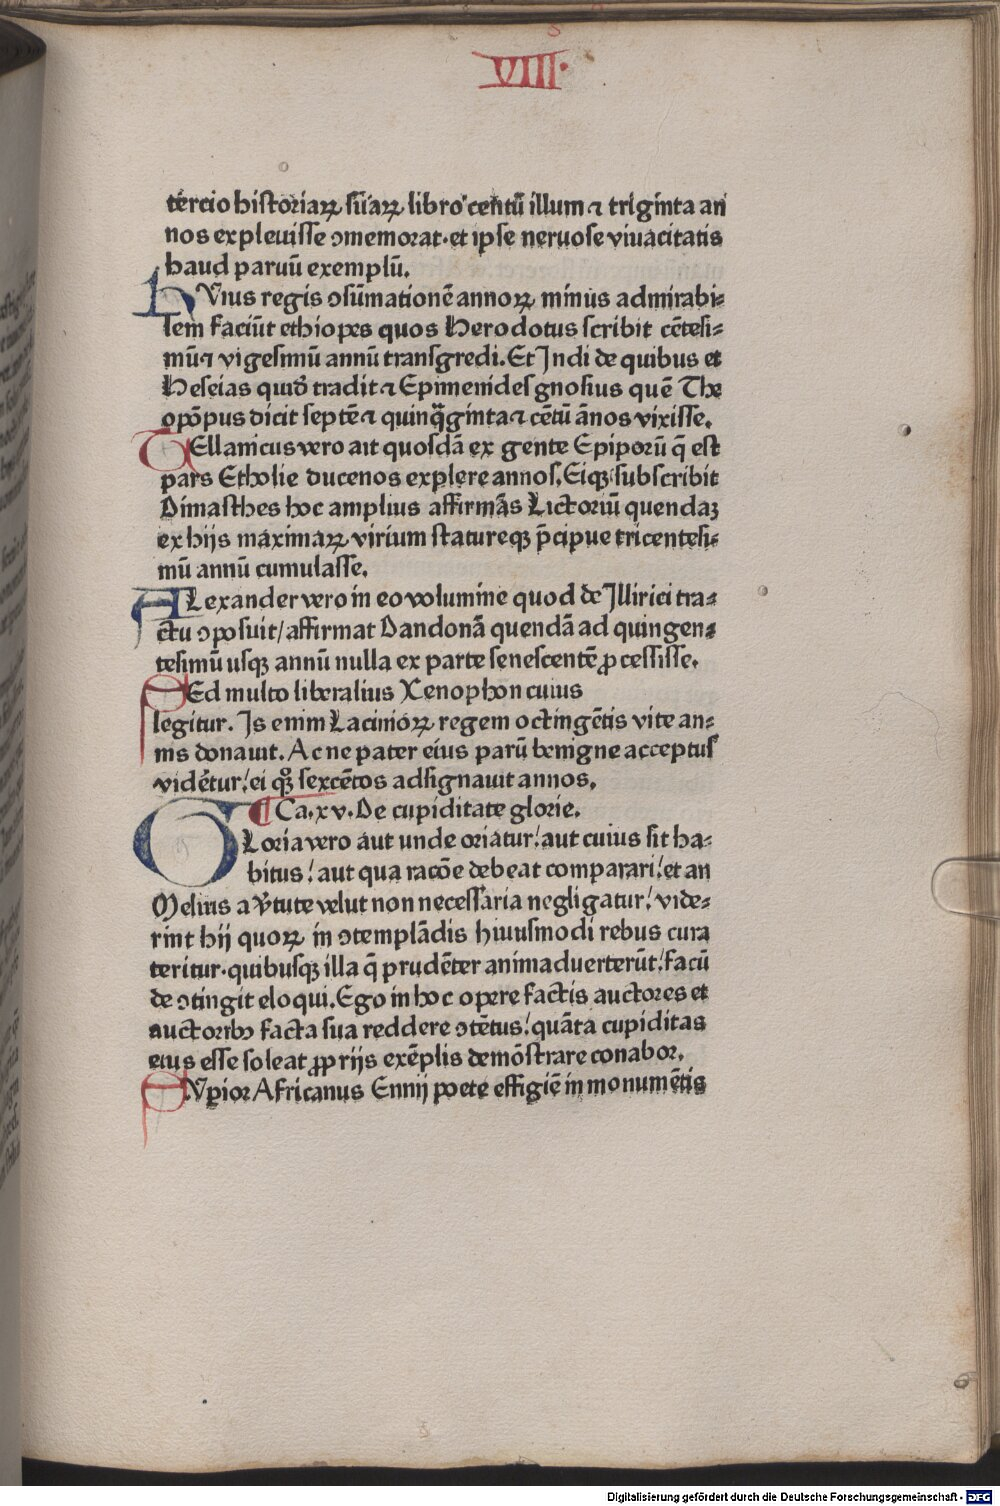 VIII·
tercio historiaꝝ suaꝝ libro centū illum ⁊ triginta an
nos expleuisse ↄmemorat·et ipse neruose viuacitatis
haud paruū exemplū.
hVius regis ↄsūmationē annoꝝ minus admirabi⸗
lem faciūt ethiopes quos Herodotus scribit cētesi⸗
mū⁊ vigesimū annū transgredi. Et Jndi de quibus et
Heseias quid tradit ⁊ Epimenides gnosius quē The
opōpus dicit septē⁊ quinq̄ginta⁊ cētū ānos vixisse.
Ellanicus vero ait quosdā ex gente Epiporū q̄ est
pars Etholie ducenos explere annos. Eiqꝫ subscribit
Dimasthes hoc amplius affirmās Lictoriū quendaꝫ
ex hijs maximaꝝ virium statureqꝫ p̄cipue tricentesi⸗
mū annū cumulasse.
ALexander vero in eo volumine quod de Jllirici tra⸗
ctu ↄposuit/ affirmat Dandonā quendā ad quingen⸗
tesimū usqꝫ annū nulla ex parte senescentē ꝓcessisse.
SEd multo liberalius Xenophon cuius
legitur. Js enim Lacinioꝝ regem octingētis vite an⸗
nis donauit. Ac ne pater eius parū benigne acceptus
vidētur/ ei qꝫ sexcētos adsignauit annos.
¶ Ca.xv. De cupiditate glorie.
GLoria vero aut unde oriatur/ aut cuius sit ha⸗
bitus/ aut qua racōe debeat comparari/ et an
Melius a v̄tute velut non necessaria negligatur/ vide⸗
rint hij quoꝝ in ↄtemplādis hiuusmodi rebus cura
teritur·quibusqꝫ illa q̄ prudēter animaduerterūt/ facū
de ↄtingit eloqui. Ego in hoc opere factis auctores et
auctoribꝫ facta sua reddere ↄtētus/ quāta cupiditas
eius esse soleat ꝓprijs exēplis demōstrare conabor.
SVpior Africanus Ennij poete effigiē in monumētis
Digitalisierung gefördert durch die Deutsche Forschungsgemeinschaft - DFG